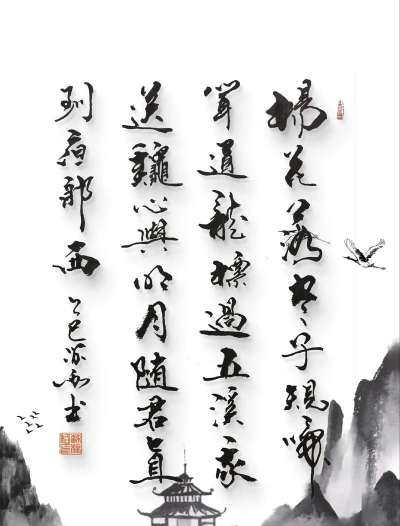 楊花落盡子規啼
聞道龍標過五溪我
心與明月隨君直
到夜郎西 乙巳 書